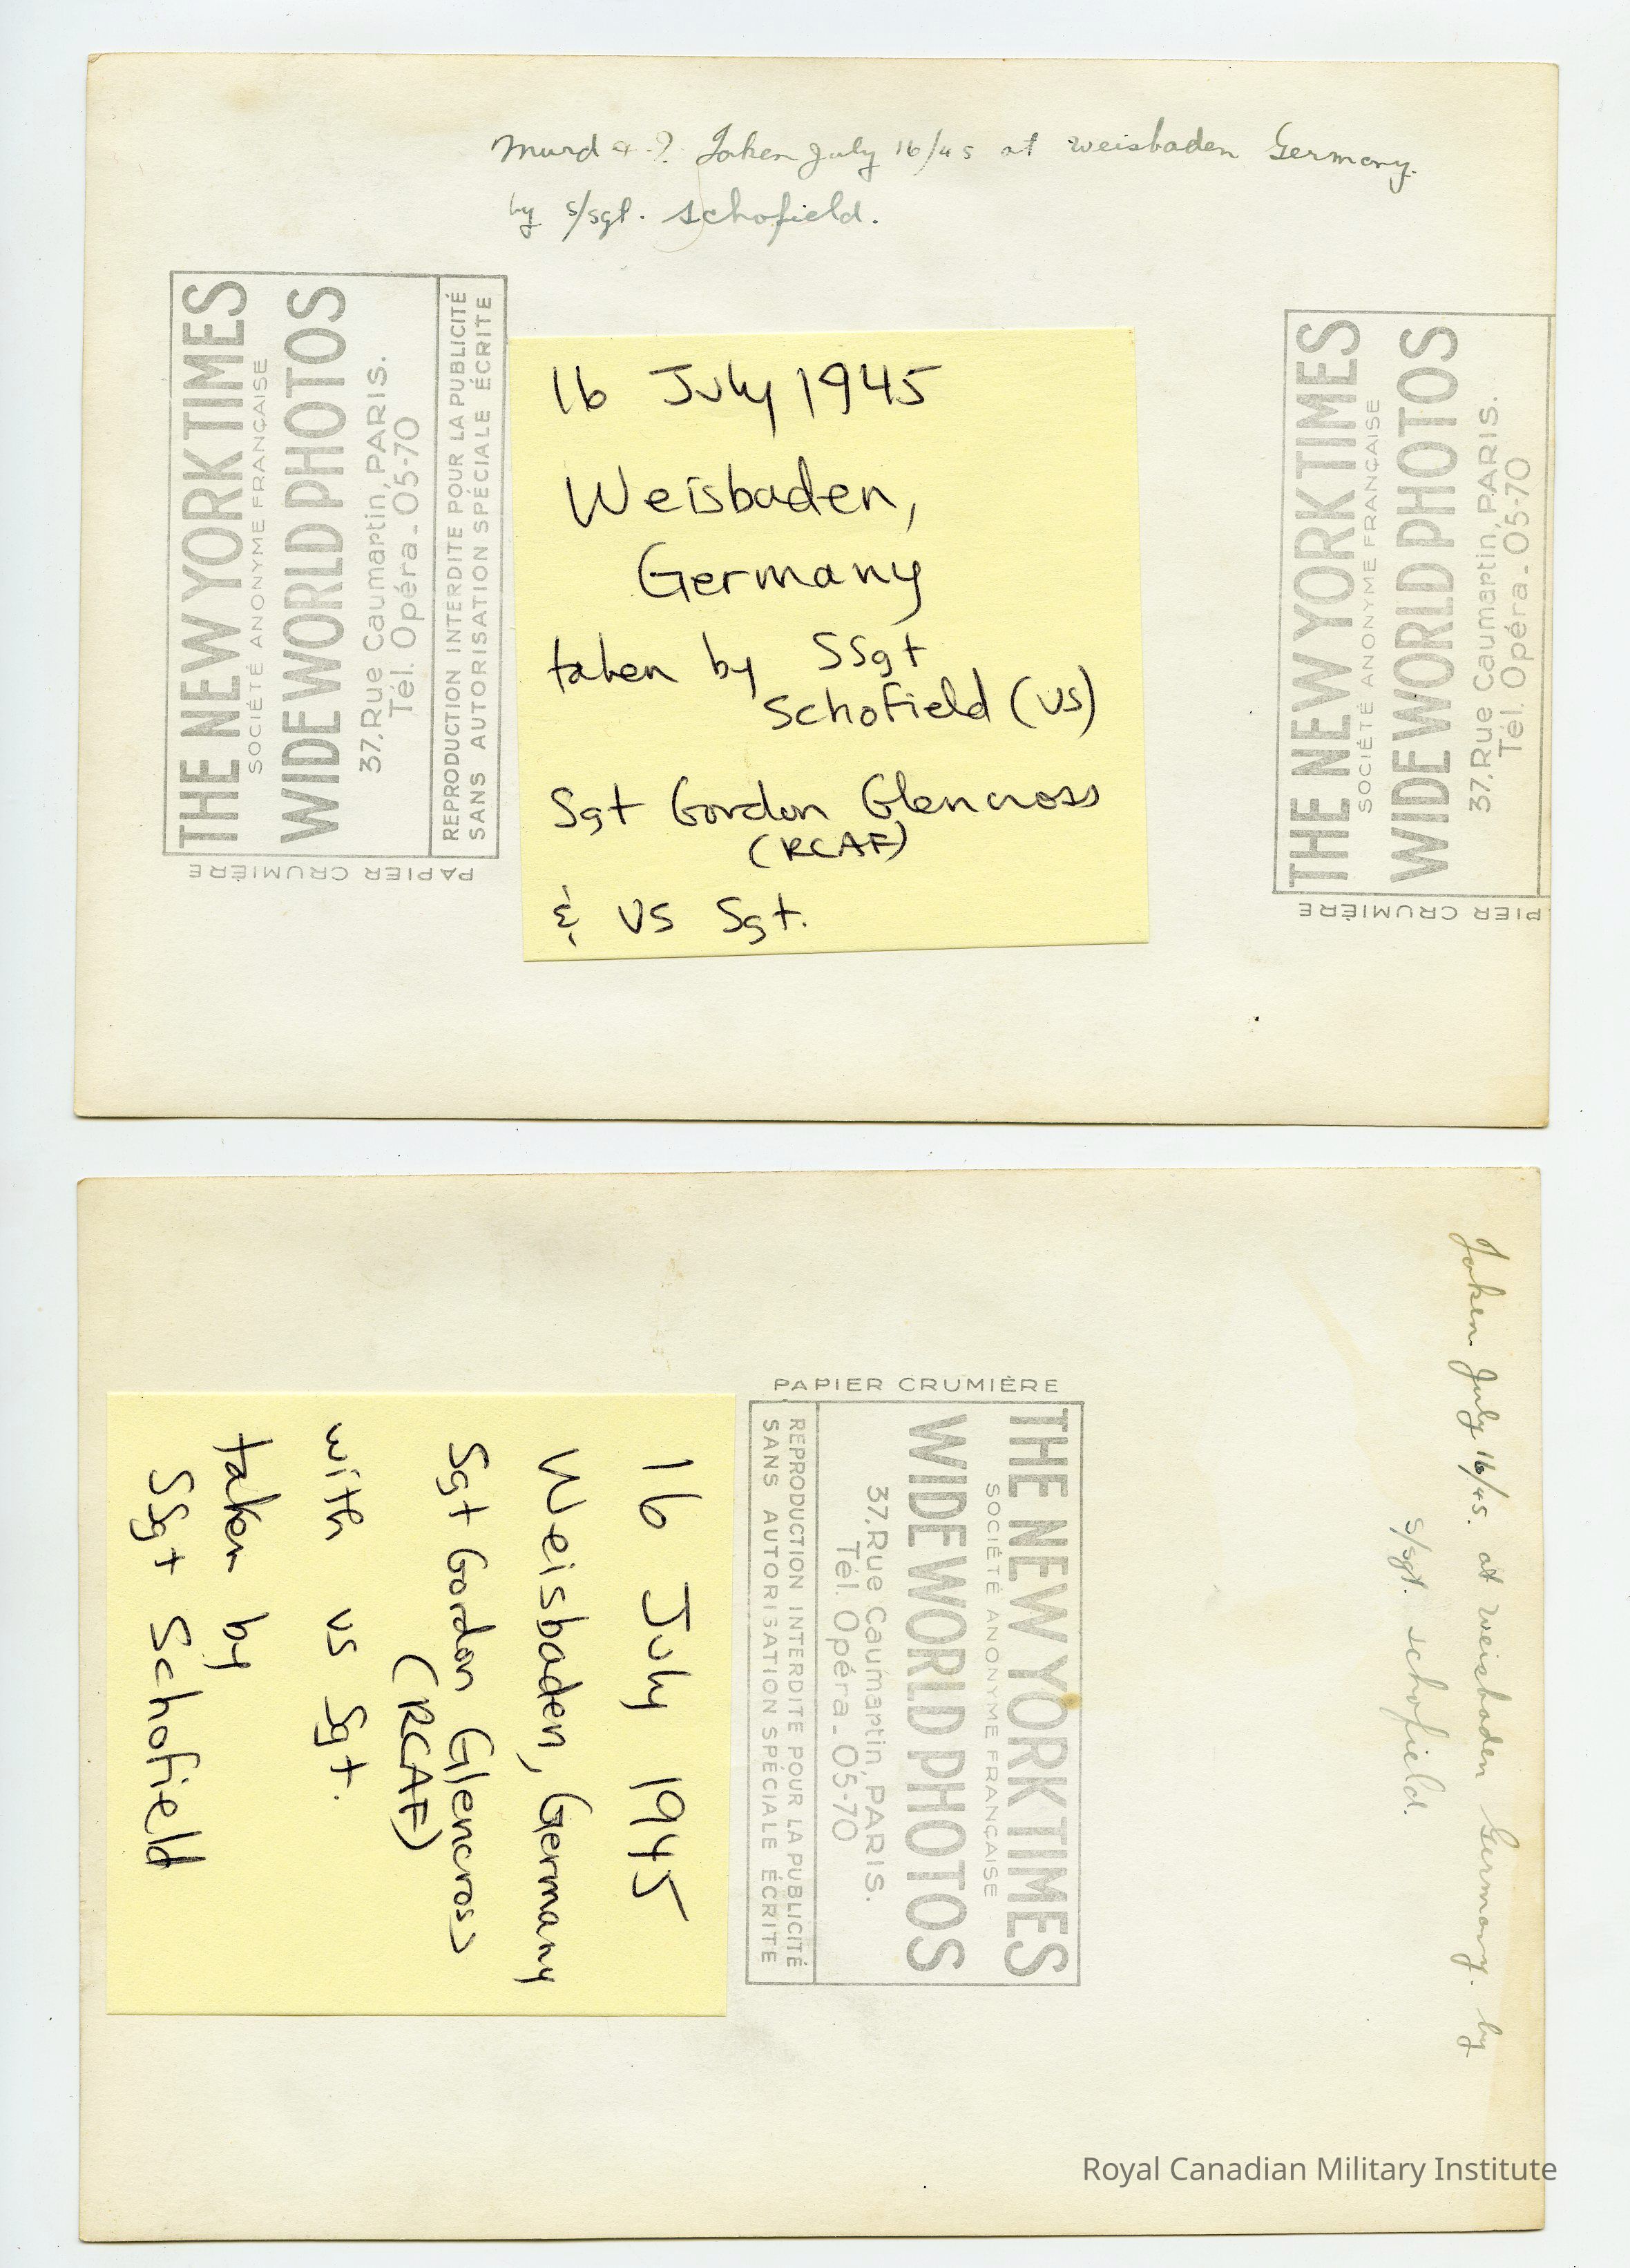 Murd & ? Taken July 16/45 at Weisbaden Germany.
by S/Sgt. Schofield.
THE NEW YORK TIMES
SOCIÉTÉ ANONYME FRANÇAISE
WIDE WORLD PHOTOS
37, Rue Caumartin, PARIS.
Tél. Opéra - 05-70
REPRODUCTION INTERDITE POUR LA PUBLICITÉ
SANS AUTORISATION SPÉCIALE ÉCRITE
PAPIER CRUMIÈRE
16 July 1945
Weisbaden,
Germany
taken by SSgt
Schofield (US)
Sgt Gordon Glencross
(RCAF)
& US Sgt.
THE NEW YORK TIMES
SOCIÉTÉ ANONYME FRANÇAISE
WIDE WORLD PHOTOS
37, Rue Caumartin, PARIS.
Tél. Opéra - 05-70
PIER CRUMIÈRE
Taken July 16/45. at Weisbaden Germany. by
S/Sgt. Schofield.
PAPIER CRUMIÈRE
THE NEW YORK TIMES
SOCIÉTÉ ANONYME FRANÇAISE
WIDE WORLD PHOTOS
37, Rue Caumartin, PARIS.
Tél. Opéra - 05-70
REPRODUCTION INTERDITE POUR LA PUBLICITÉ
SANS AUTORISATION SPÉCIALE ÉCRITE
16 July 1945
Weisbaden, Germany
Sgt Gordon Glencross
(RCAF)
with US Sgt.
taken by
SSgt Schofield
Royal Canadian Military Institute